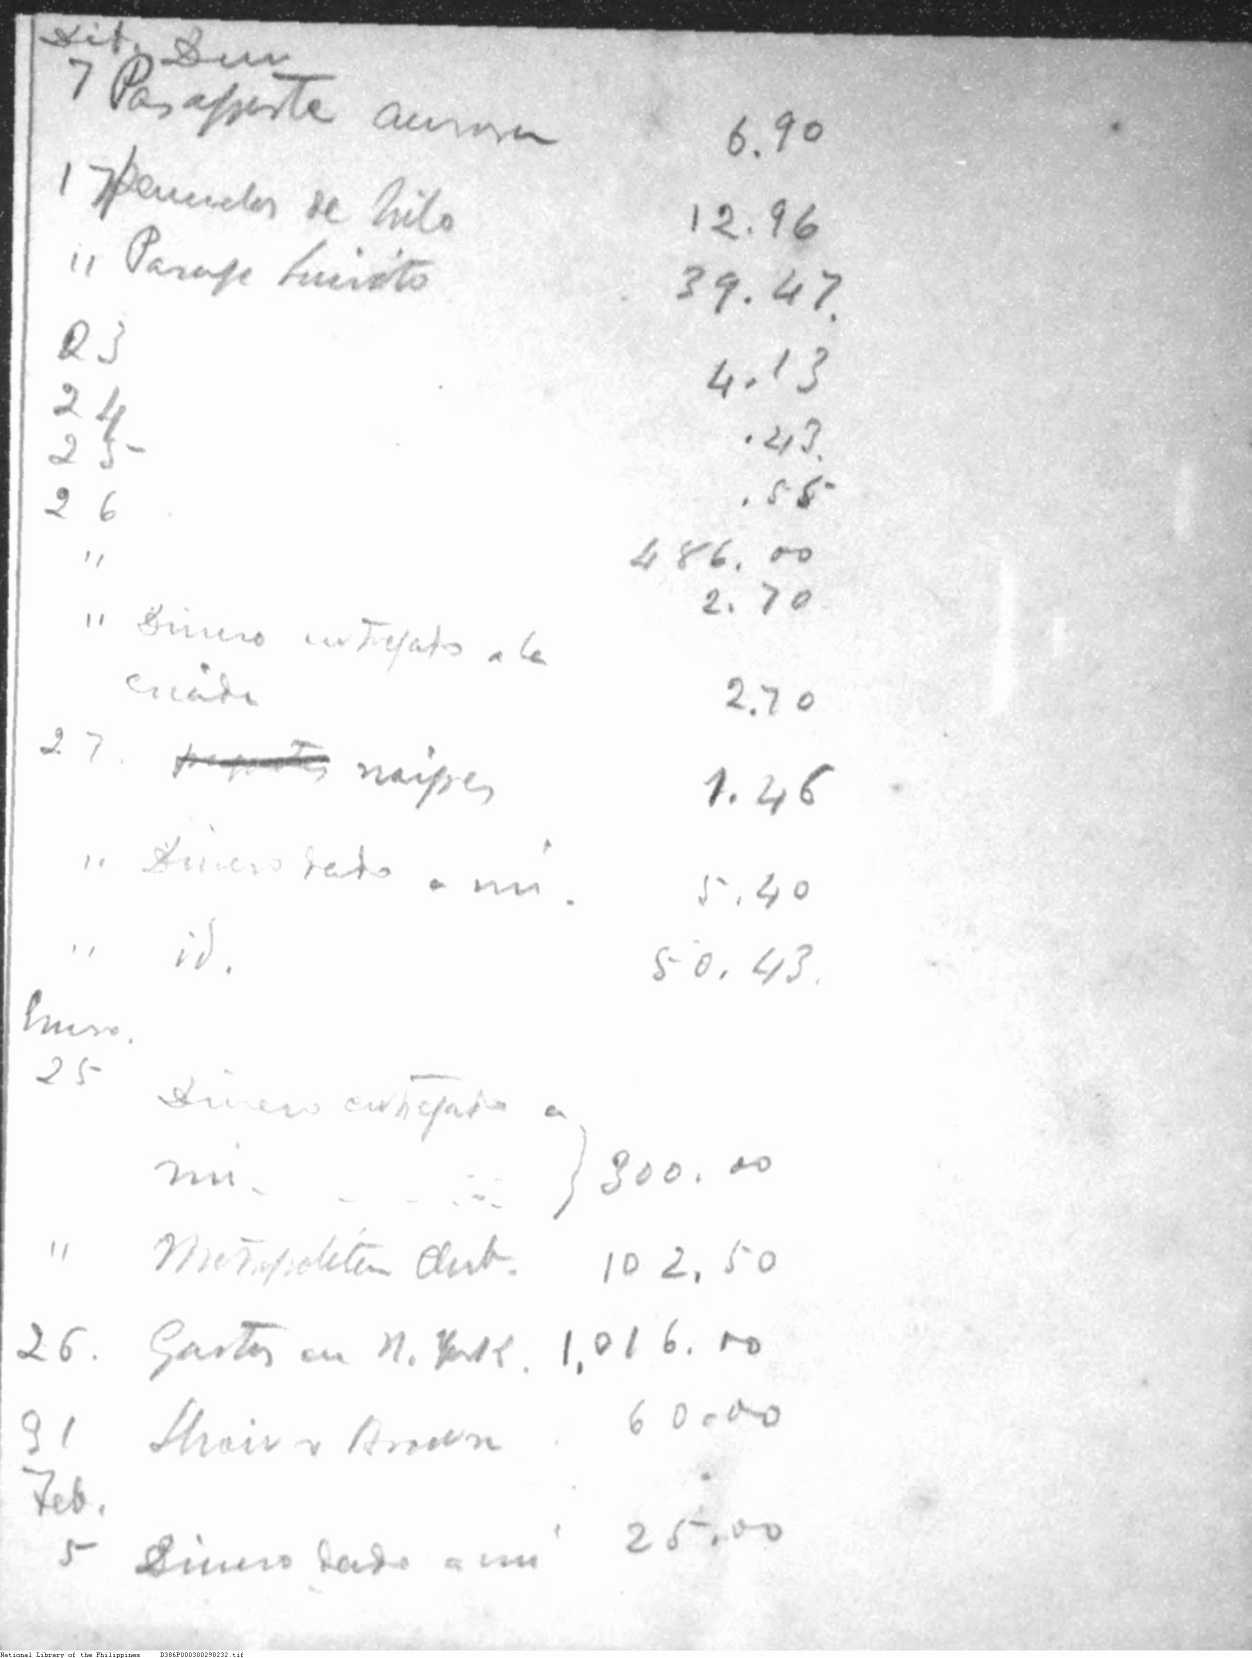 7 Pasaporte Aurora 6.90
17 de hilo 12.96
" Pasaje Luisito 39.47.
23 4.13
24 .43.
25 .55
26 486.00
" 2.70
" Dinero entregado a la
criada 2.70
27. naipes 1.46
" Dinero dado a mí. 5.40
" id. 50.43.
Enero.
25 Dinero entregado a
mí. 300.00
" Metropolitan Club. 102.50
26. Gastos en N. York. 1,016.00
31 Brown 60.00
Feb.
5 Dinero dado a mí 25.00
National Library of the Philippines D386P000300290232.tif